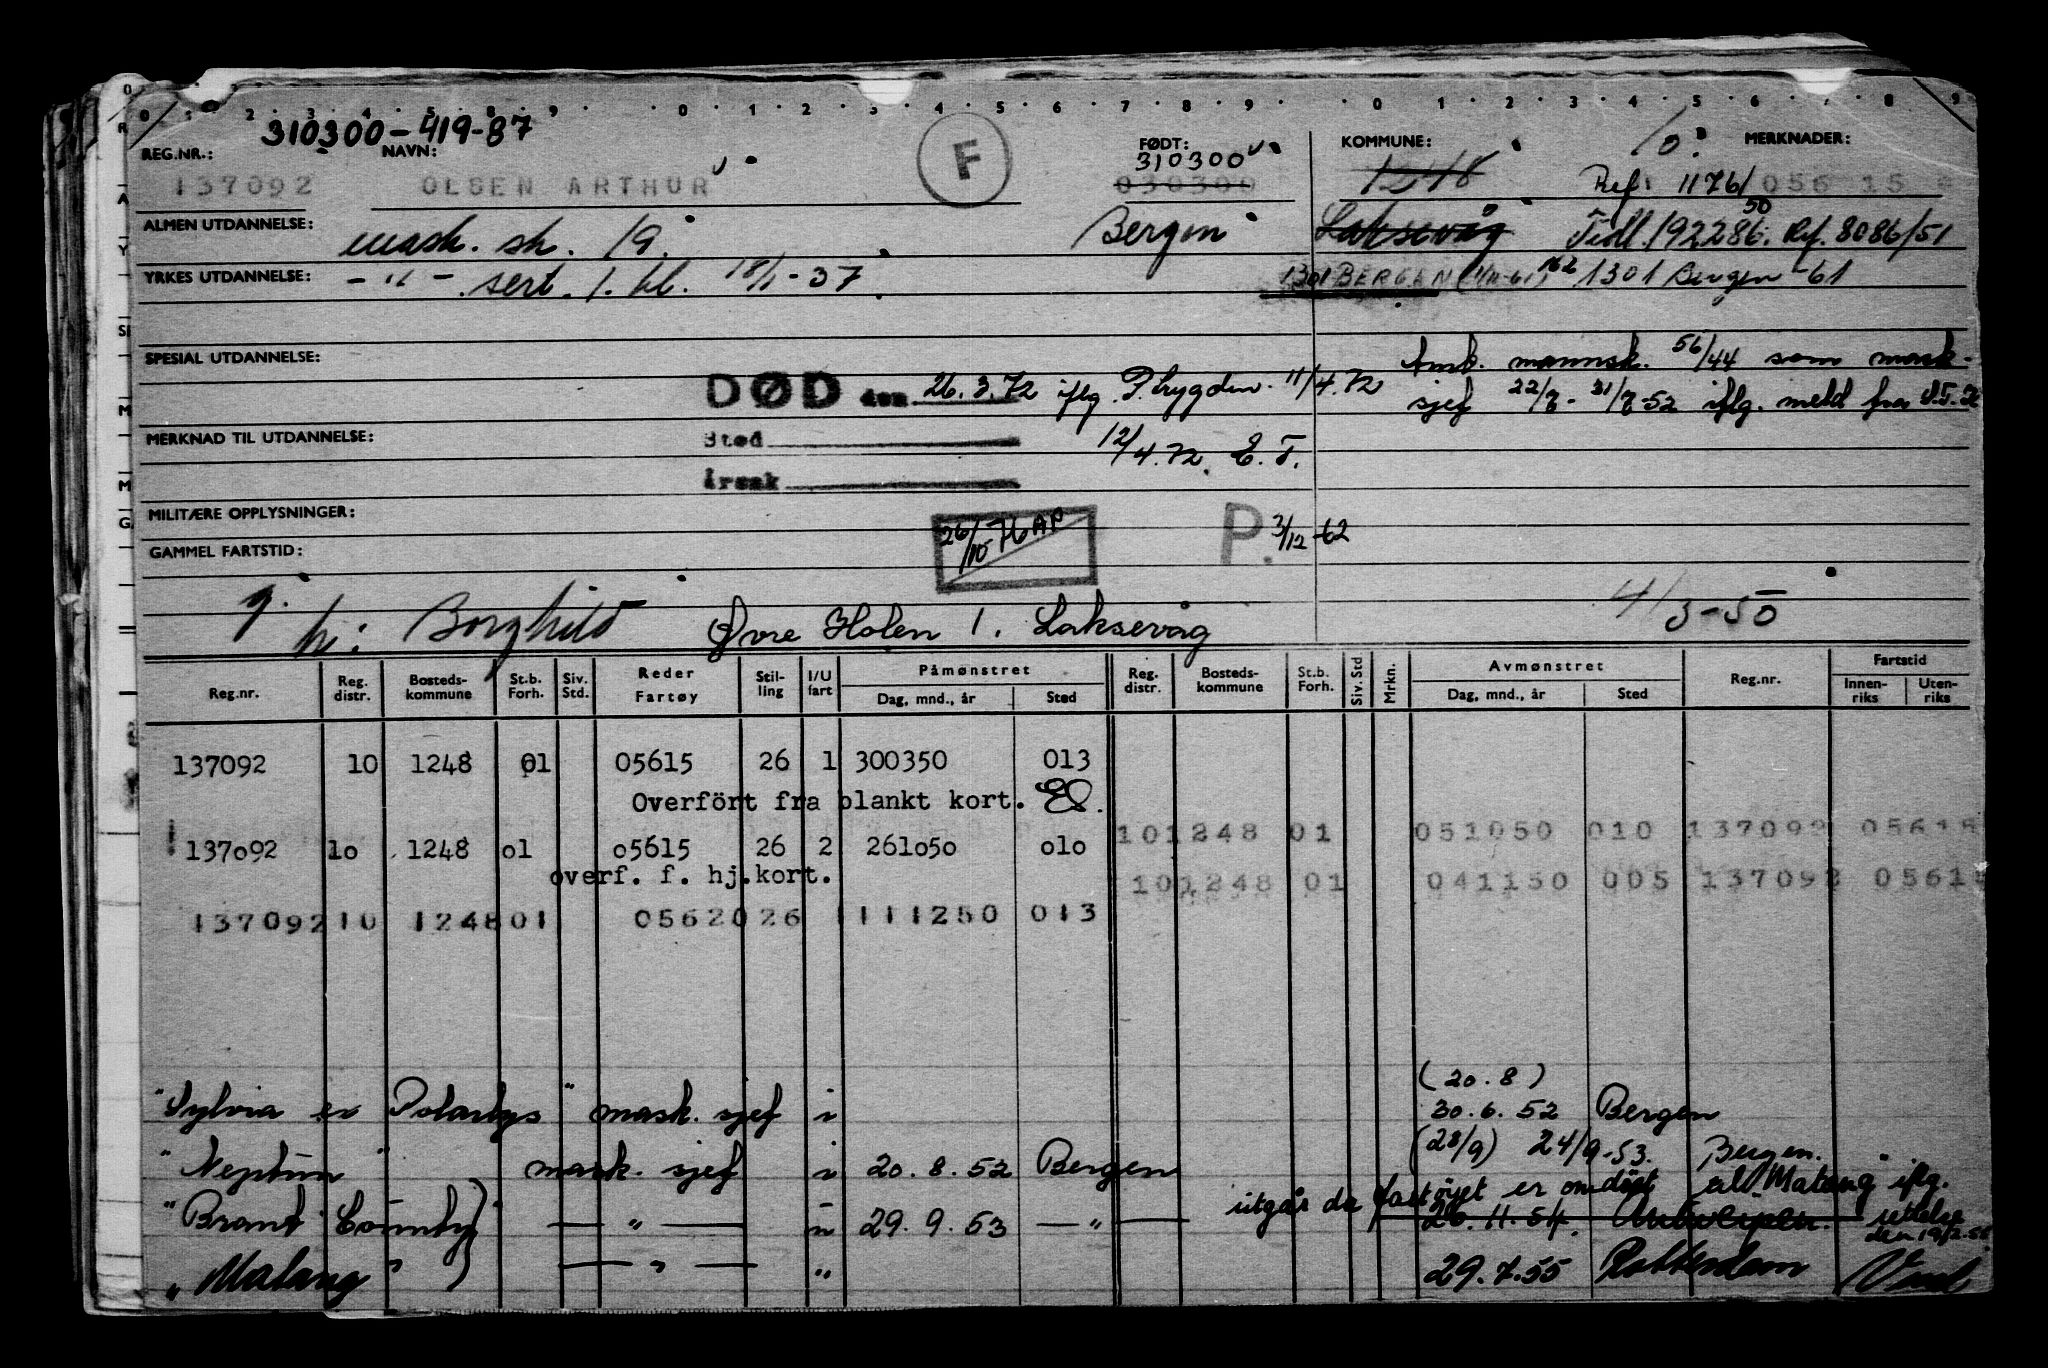 310300-419-87
REG.NR.: NAVN: FØDT: KOMMUNE: MERKNADER:
137092 OLSEN ARTHUR F 310300 1248 Ref: 1176/50 056 15
030300
ALMEN UTDANNELSE: mask. sk. 19. Bergen Laksevåg Tidl. 192286. Ref. 8086/51
YRKES UTDANNELSE: - " - sert. 1. kl. 18/1-37 1301 BERGEN 1301 Bergen -61
SPESIAL UTDANNELSE: Ank. mannsk. 56/44 som mask-
DØD den 26.3.72 iflg. P.trygden. 11/4.72 sjef 22/7- 31/7-52 iflg. meld fra
MERKNAD TIL UTDANNELSE: Sted 12/4.72. E.T.
Årsak
MILITÆRE OPPLYSNINGER: 26/10-76 AP P. 3/12-62
GAMMEL FARTSTID:
g. 4/3-50
h: Borghild Øvre Holen 1. Laksevåg
Reg.nr. Reg. distr. Bosteds-kommune St.b. Forh. Siv. Std. Reder Fartøy Stil-ling I/U fart Påmønstret Dag, mnd., år Sted Reg. distr. Bosteds-kommune St.b. Forh. Siv. Std Mrkn. Avmønstret Dag, mnd., år Sted Reg.nr. Fartstid Innen-riks Uten-riks
137092 10 1248 01 05615 26 1 300350 013
Overfört fra blankt kort.
101248 01 051050 010 137092 05615
137o92 1o 1248 o1 o5615 26 2 261o5o o1o
overf. f. hj.kort.
101248 01 041150 005 137092 05615
137092 10 124801 0562026 1111250 013
(20.8)
"Sylvia ex Polarbys" mask. sjef i 30.6.52 Bergen
(28/9) 24/9-53. Bergen.
"Neptun" mask. sjef i 20.8.52 Bergen
utgår da fartøyet er omdøpt til "Matang" iflg.
"Brant County" - " - u 29.9.53 - " - 26.11.54. Antwerpen. rettelse
"Matang" - " - " 29.7.55 Rotterdam